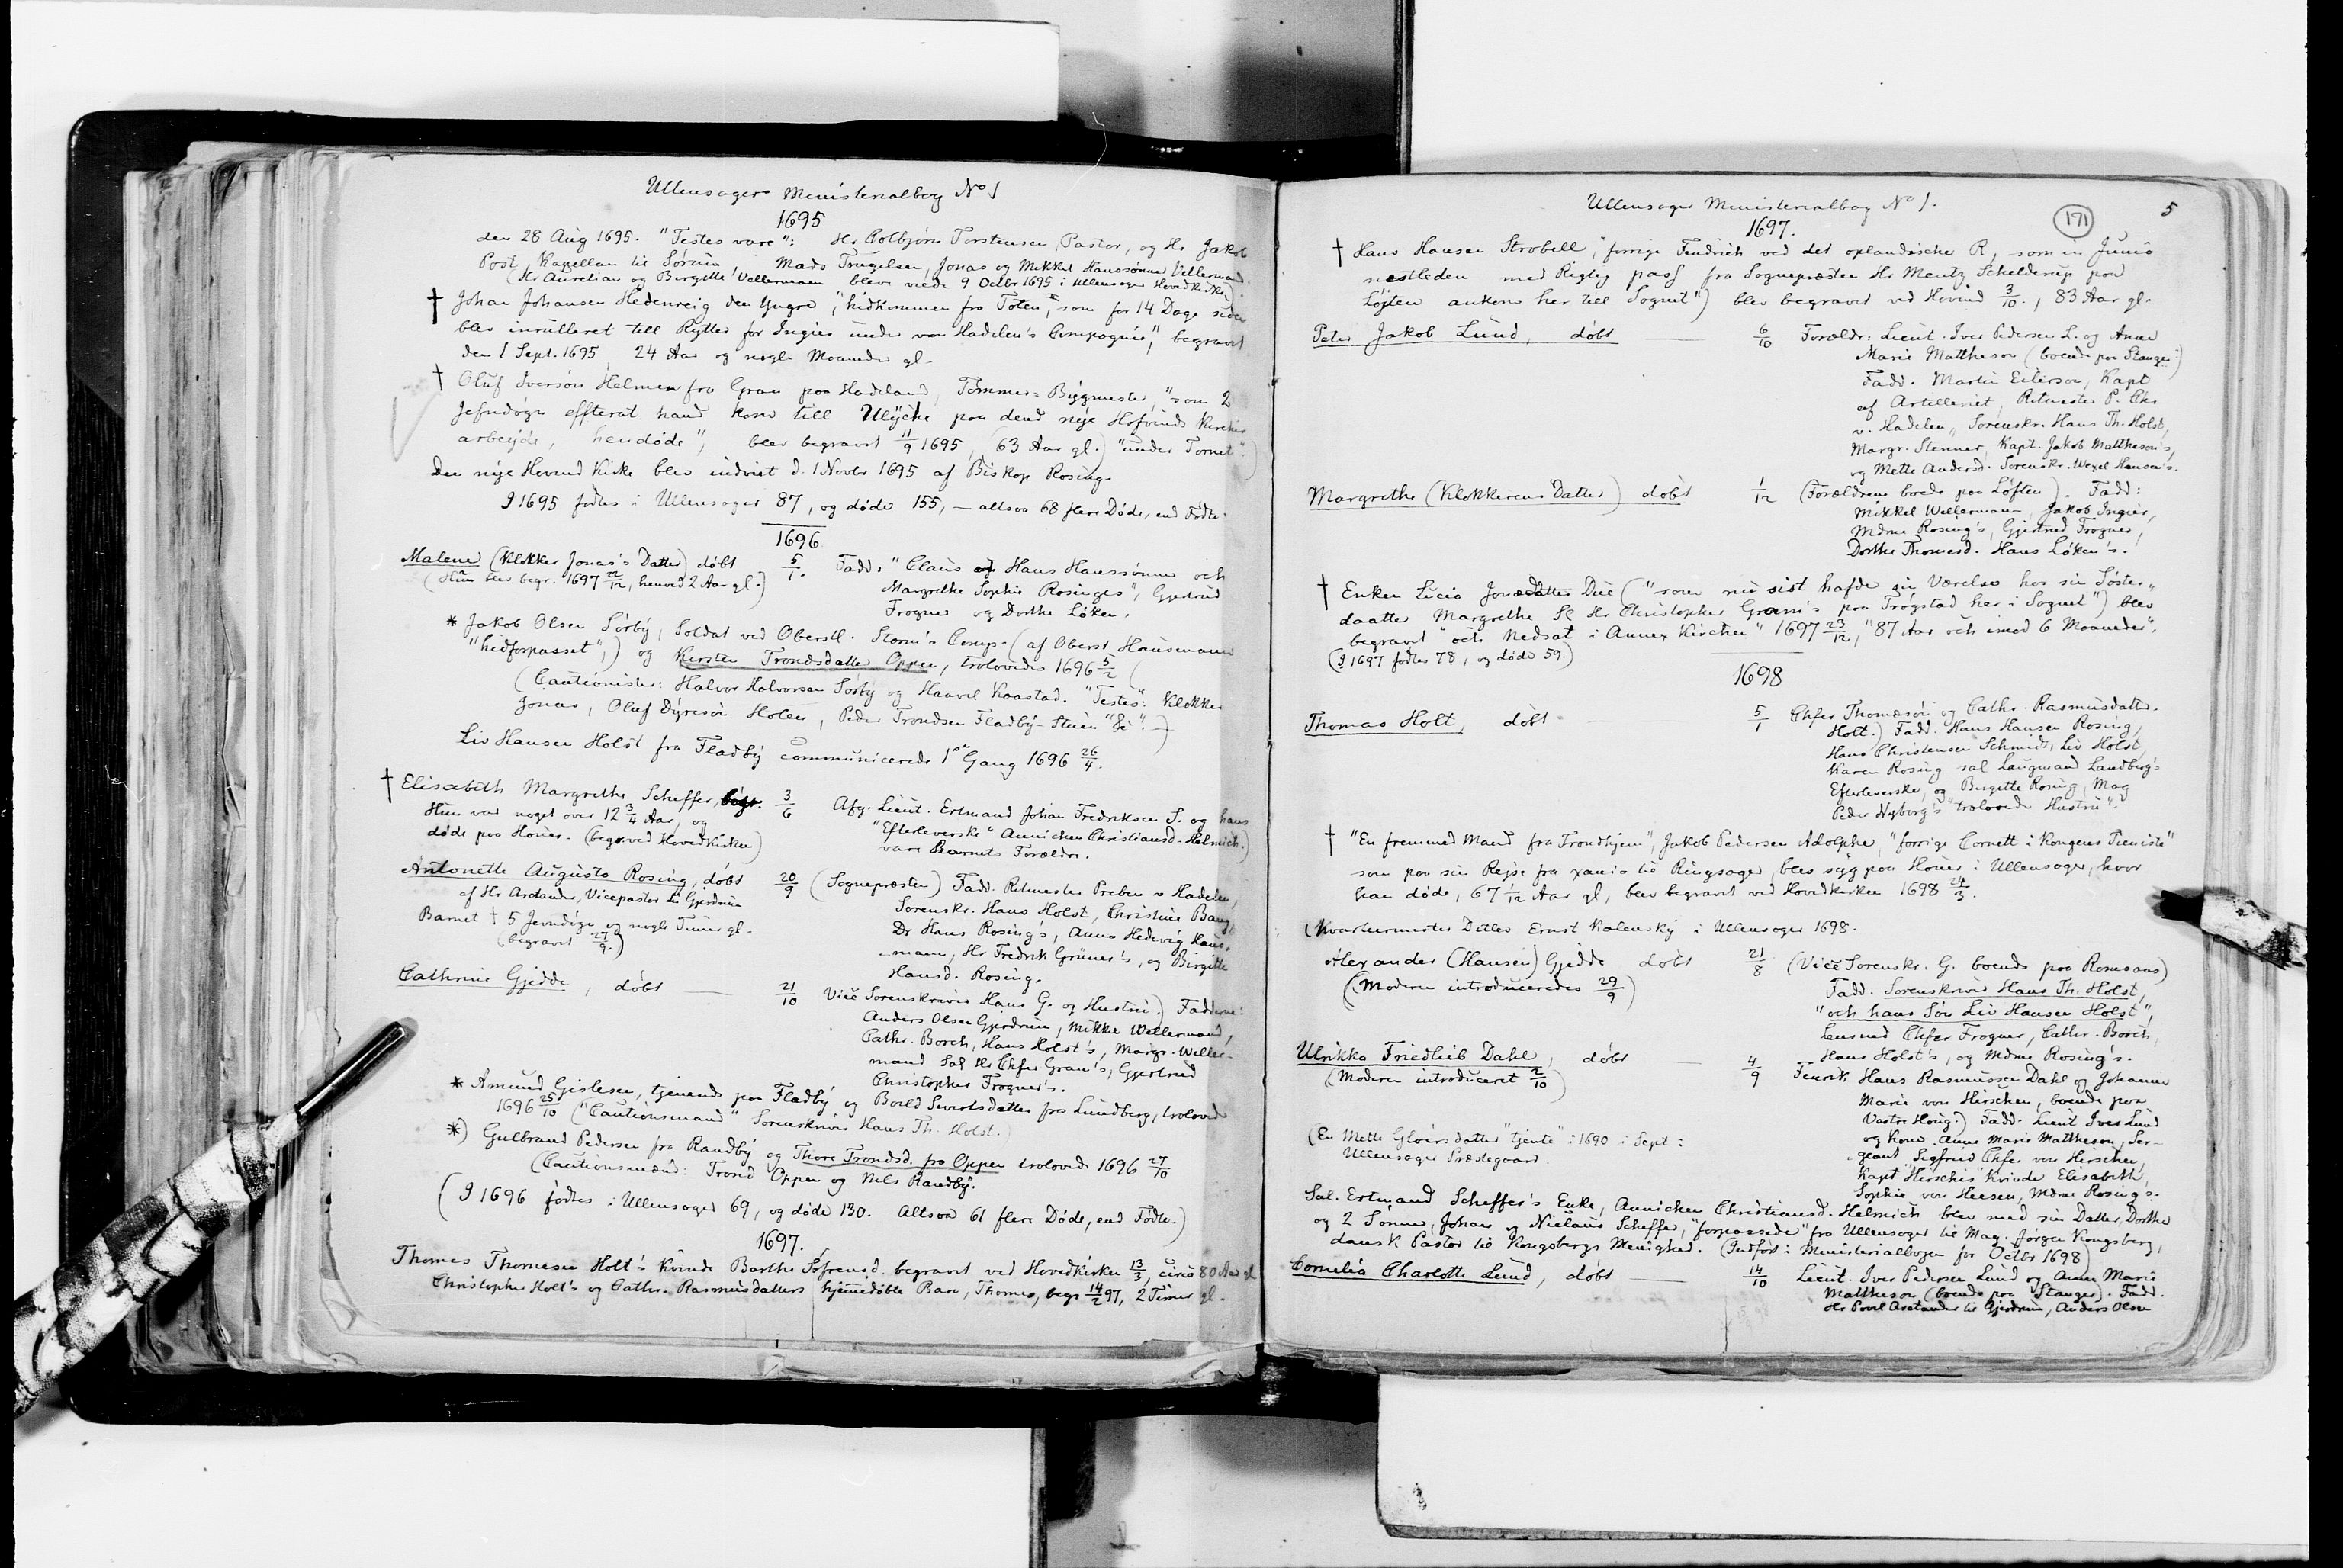 Ullensagers Ministerialbog No 1
1695
den 28 Aug 1695. "Testes vare": Hr Colbjørn Torstensen, Pastor, og Hr Jakob
Post, Kapellan til Sørum Mads Trugelsen, Jonas og Mikkel Hanssønner Vellermand.
(Hr Aurelian og Birgitte Vellermann bleve viede 9 Octbr 1695 i Ullensager Hovedkirke)
† Johan Johansen Hedenreig den Yngre, "hidkommen fra Toten, som for 14 Dage siden
blev inrulleret till Rytter for Ingier under von Hadelen's Compagnie", begravet
den 1 Sept. 1695 24 Aar og nogle Maaneder gl.
† Oluf Iversøn Helmen fra Gran paa Hadeland, Tømmer-Bygmester, "som 2
Jefndøgn effterat hand kom till Ulycke paa dend nye Hofvinds Kirches
arbeyde, hendøde", blev begravet 11/9 1695, 63 Aar gl.) "under Tornet".)
Den nye Hovind Kirke blev indviet d. 1 Novbr 1695 af Biskop Rosing.
I 1695 fødtes i Ullensager 87, og døde 155, — altsaa 68 flere Døde, end Fødte.
1696
Malene (Klokker Jonas's Datter) døbt 5/1. Fadd. "Claus og Hans Hanssønner och
(Hun blev begr. 1697 22/12, henved 2 Aar gl.) Margrethe Sophie Rosinges", Gjertrud
Frogner og Dorthe Løken.
* Jakob Olsen Sørby, Soldat ved Oberstl. Storm's Comp. (af Oberst Hausmann
"hidforpasset",) og Kirsten Trondsdatter Oppen, trolovedes 1696 5/2 (
(Cautionister: Halvor Halvorsen Sørby og Haavel Kaastad. "Testes": Klokker
Jonas, Oluf Dyresøn Holen, Peder Trondsen Fladby-Stuen "&c". —)
Liv Hansen Holst fra Fladby communicerede 1ste Gang 1696 26/4.
† Elisabeth Margrethe Scheffer, begr. 3/6 Afg. Lieut. Ertmand Johan Fredriksen S. og hans
Hun var noget over 12 3/4 Aar, og "Efterleverske" Annichen Christiansd. Helmich.)
døde paa Houer. (begr. ved Hovedkirken) vare Barnets Forældre.
Antonette Augusta Rosing, døbt 20/9 (Sognepræsten) Fadd. Ritmester Preben v Hadelen,
af Hr Arctander, Vicepastor til Gjerdrum Sorenskr. Hans Holst, Christine Bang,
Barnet † 5 Jevndøgn og nogle Timer gl. Dr Hans Rosings, Anna Hedevig Haus-
(begravet 27/9.) mann, Hr Fredrik Grüner's, og Birgitte
Hansd. Rosing.
Cathrine Gjedde, døbt — 21/10 Vice Sorenskriver Hans G. og Hustru.) Fadderne:
Anders Olsen Gjerdrum, Mikkel Wellermand,
Cathr. Borch, Hans Holst's, Margr. Weller-
mand Sal Hr Chfer Gram's, Gjertrud
Christopher Frogner's.
* Amund Gislesen, tjenende paa Fladby og Boeld Sivertsdatter fra Lundberg, trolovede
1696 25/10 ("Cautionsmand" Sorenskriver Hans Th. Holst.)
*) Gulbrand Pedersen fra Randby og Thore Trondsd. fra Oppen trolovede 1696 27/10
(Cautionsmænd: Trond Oppen og Nils Randby.
(I 1696 fødtes i Ullensager 69, og døde 130. Altsaa 61 flere Døde, end Fødte.)
1697.
Thomas Thomesen Holt's Kvinde Barthe Sørensd. begravet ved Hovedkirken 13/3, circa 80 Aar gl
Christopher Holt's og Cathr. Rasmusdatters hjemmedøbte Barn, Thomas, begr 14/2 97, 2 Timer gl.
Ullensager Ministerialbog No 1.
171
5
1697.
† Hans Hansen Strobell, "forrige Fendrich ved det oplandische R, som in Junio
nestleden med Rigtig pass fra Sognepræsten Hr Mentz Schelderup paa
Løjten ankom her till Sognet") blev begravet ved Hovind 3/10., 83 Aar gl.
Peter Jakob Lund, døbt — 6/10 Forældr: Lieut. Iver Pedersen L. og Anne
Marie Matthesen (boende paa Stanger.)
Fadd. Martin Eilersen, Kapt
af Artilleriet, Ritmester P. Chr
v. Hadelen, Sorenskr. Hans Th. Holst,
Margr. Stenner, Kapt. Jakob Mattheson's,
og Mette Andersd. Sorenskr. Wegel Hansen's.
Margrethe (Klokkerens Datter) døbt 1/12 (Forældrene boede paa Løften). Fadd:
Mikkel Wellermann, Jakob Ingier,
Mdme Rosing's, Gjertrud Frogner,
Dorthe Thomesd. Hans Løken's.
† Enken Lucia Jonædatter Due ("som nu sist hafde sin Værelse hos sin Søster-
daatter Margrethe Sl Hr Christopher Gram's paa Trøgstad her i Sognet") blev
begravet "och Nedsat i Annex Kirchen" 1697 23/12, "87 Aar och imod 6 Maaneder".
(I 1697 fødtes 78, og døde 59.)
1698
Thomas Holt, døbt — 5/1 Chfer Thomæsøn og Cathr. Rasmusdatter
Holt.) Fadd. Hans Hansen Rosing,
Hans Christensen Schmidt, Liv Holst,
Karen Rosing sal Laugmand Landberg's
Efterleverske, og Birgitte Rosing, Mag
Peder Nyborg's "trolovede Hustru".
† "En fremmed Mand fra Trondhjem", Jakob Pedersen Adolphe, "forrige Cornett i Kongens Tieniste"
som paa sin Rejse fra Xania til Ringsager, blev syg paa Houer i Ullensager, hvor
han døde, 67 1/12 Aar gl, blev begravet ved Hovedkirken 1698 24/3.
(Kvartermester Ditlev Ernst Kalensky i Ullensager 1698.
Alexander (Hansen) Gjedde døbt 21/8 (Vice Sorenskr. G. boende paa Romsaas)
(Moderen introduceredes 29/9) Fadd. Sorenskriver Hans Th. Holst,
"och hans Søn Liv Hansen Holst",
Lensmd Chfer Frogner, Cathr. Borch,
Hans Holst's, og Mdme Rosing's.
Ulrikka Friedlieb Dahl, døbt — 4/9 Fenrik Hans Rasmussen Dahl og Johanne
(Moderen introduceret 2/10) Marie von Hirschen, boende paa
Vastre Houg.) Fadd. Lieut Iver Lund
og Kone Anne Marie Matthesen, Ser-
(En Mette Gloersdatter "tjente" i 1690 i Sept i geant Sigfried Chfer von Hirschen,
Ullensager Præstegaard. Kapt "Hirschis" Kvinde Elisabeth,
Sophie von Heesen, Mdme Rosing's.
Sal. Ertmand Scheffer's Enke, Annichen Christiansd. Helmich blev med sin Datter, Dorthe
og 2 Sønner, Johan og Nielaus Scheffer, "forpassede" fra Ullensager til Mag. Jørgen Kongsberg,
dansk Pastor til Kongsbergs Menighed. (Indført i Ministerialbogen for Octbr 1698)
Cornelia Charlotte Lund, døbt — 14/10 Lieut. Iver Pedersen Lund og Anne Marie
Matthesen (boende paa Stanger). Fadd.
Hr Povel Arctander til Gjerdrum, Anders Olsen